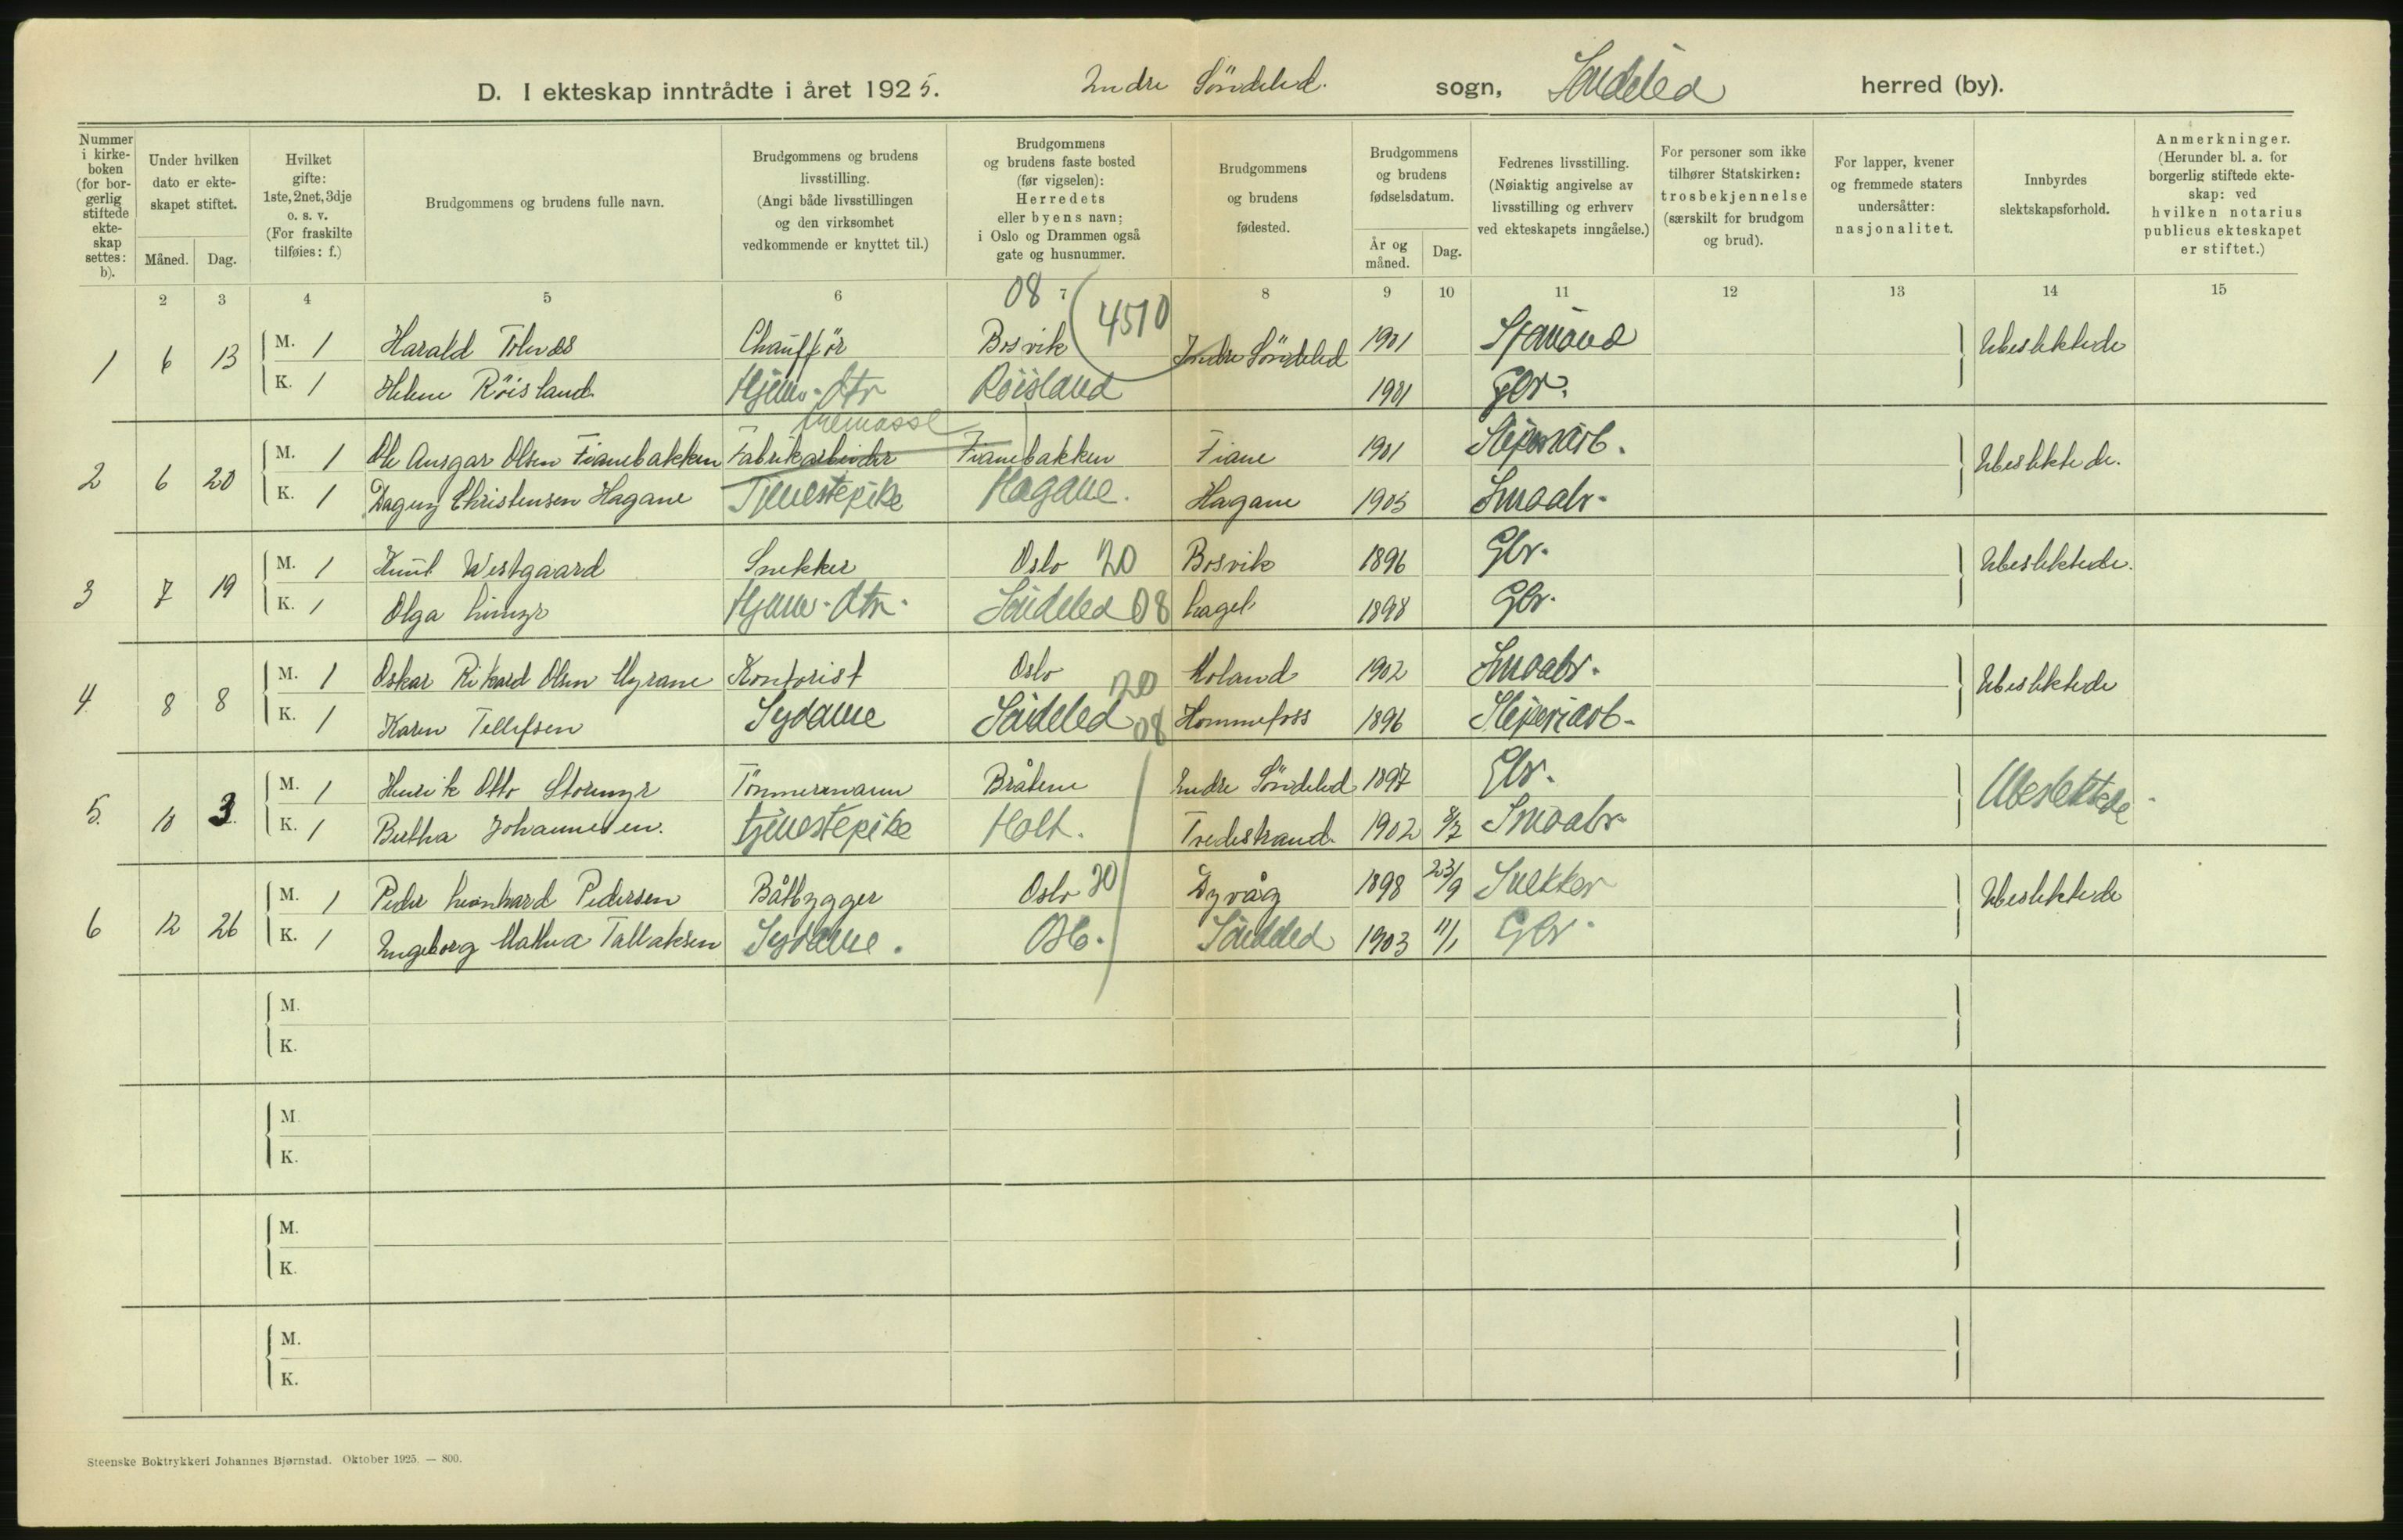 D. I ekteskap inntrådte i året 1925. Indre Söndeled. sogn, Söndeled herred (by).
Nummer i kirkeboken (for borgerlig stiftede ekteskap settes: b).
Under hvilken dato er ekteskapet stiftet.
Måned. Dag.
Hvilket gifte: 1ste, 2net, 3dje o. s. v. (For fraskilte tilføies: f.)
Brudgommens og brudens fulle navn.
Brudgommens og brudens livsstilling. (Angi både livsstillingen og den virksomhet vedkommende er knyttet til.)
Brudgommens og brudens faste bosted (før vigselen): Herredets eller byens navn; i Oslo og Drammen også gate og husnummer.
Brudgommens og brudens fødested.
Brudgommens og brudens fødselsdatum.
År og måned. Dag.
Fedrenes livsstilling. (Nøiaktig angivelse av livsstilling og erhverv ved ekteskapets inngåelse.)
For personer som ikke tilhører Statskirken: trosbekjennelse (særskilt for brudgom og brud).
For lapper, kvener og fremmede staters undersåtter: nasjonalitet.
Innbyrdes slektskapsforhold.
Anmerkninger. (Herunder bl. a. for borgerlig stiftede ekteskap: ved hvilken notarius publicus ekteskapet er stiftet.)
2 3 4 5 6 08 7 8 9 10 11 12 13 14 15
4510
1 6 13 M. 1 Harald Chaufför Bosvik Indre Söndeled 1901 Ubeslektede
K. 1 Helene Röisland Hjem. dtr Röisland 1901 Gbr.
2 6 20 M. 1 Ole Ansgar Olsen Fianebakken Fabrikarbeider Fianebakken Fiane 1901 Ubeslektede.
K. 1 Dagny Christensen Hagane Tjenestepike Hagane. Hagane 1905 Smaabr.
3 7 19 M. 1 Knut Westgaard Snekker Oslo 20 Bosvik 1896 Gbr. Ubeslektede.
K. 1 Olga Hjem. dtr. Söndeled 08 1898 Gbr.
4 8 8 M. 1 Oskar Rikard Olsen Myrane Kontorist Oslo 20 Holand 1902 Smaabr. Ubeslektede
K. 1 Karen Tellefsen Sydame Söndeled 08 Hommefoss 1896
5. 10 3. M. 1 Henrik Otto Stormyr Tömmermann Bråtene Indre Söndeled 1897 Gbr. Ubeslektede
K. 1 Bertha Johannesen. Tjenestepike Holt. Tvedestrand 1902 8/7 Smaabr.
6 12 26 M. 1 Peder Leonhard Pedersen Båtbygger Oslo 20 Dyvåg 1898 23/9 Snekker Ubeslektede
K. 1 Ingeborg Mathea Tallaksen Sydame. Söndeled 1903 11/1 Gbr.
M.
K.
M.
K.
M.
K.
M.
K.
Steenske Boktrykkeri Johannes Bjørnstad. Oktober 1925. — 800.